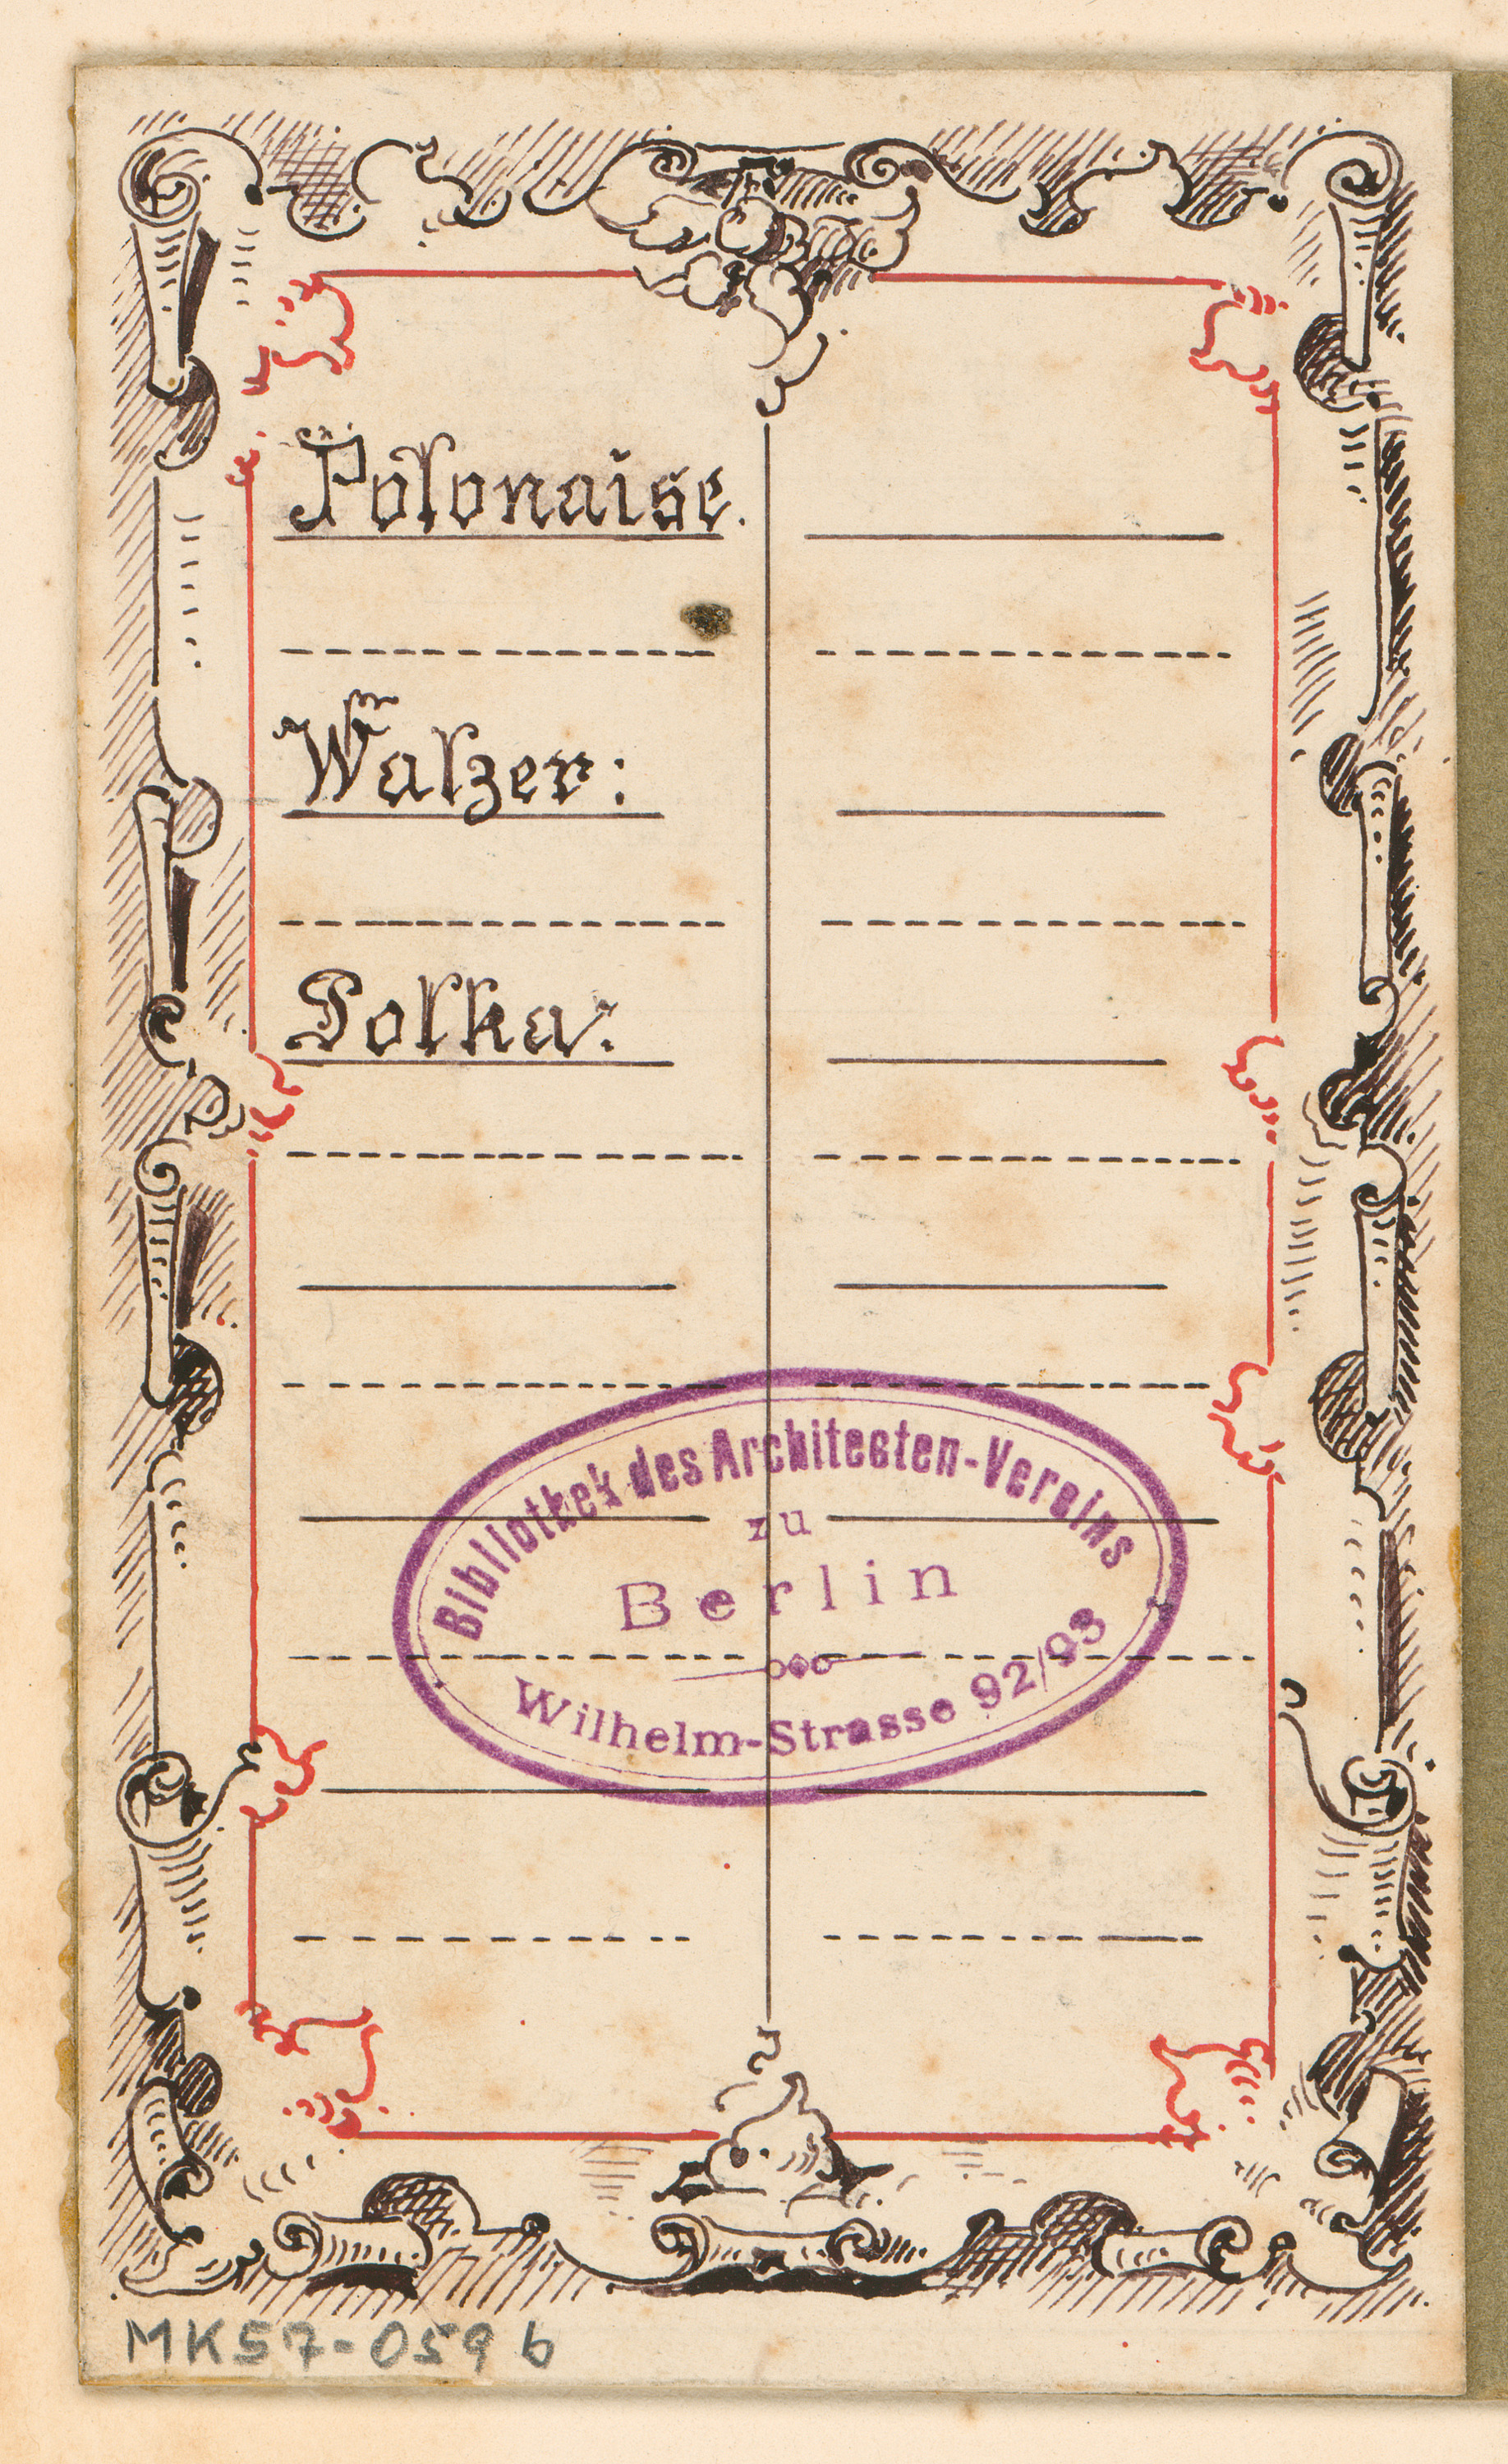 Polonaise.
Walzer:
Polka:
Bibliothek des Architecten-Vereins
zu
Berlin
Wilhelm-Strasse 92/93
MK57-059 b